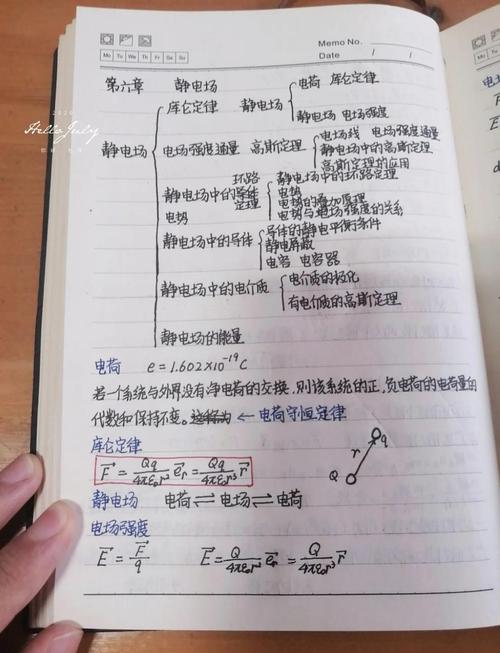 Memo No.
Mo Tu We Th Fr Sa Su
Date / /
第六章 静电场
静电场
库仑定律 静电场
电荷 库仑定律
静电场 电场强度
电场强度通量 高斯定理
电场线 电场强度通量
静电场中的高斯定理
高斯定理的应用
静电场中的环路定理
电势
静电场中的环路定理
电势
电势的叠加原理
电势与电场强度的关系
静电场中的导体
导体的静电平衡条件
静电屏蔽
电容 电容器
静电场中的电介质
电介质的极化
有电介质的高斯定理
静电场的能量
2020
Hello July
电荷 e=1.602×10⁻¹⁹C
若一个系统与外界没有净电荷的交换,则该系统的正,负电荷的电荷量的
代数和保持不变。 ← 电荷守恒定律
库仑定律
F⃗ = Qq/4πε₀r² e⃗ᵣ = Qq/4πε₀r³ r⃗
Q r q
静电场 电荷⇌电场⇌电荷
电场强度
E⃗ = F⃗/q E⃗ = Q/4πε₀r² e⃗ᵣ = Q/4πε₀r³ r⃗